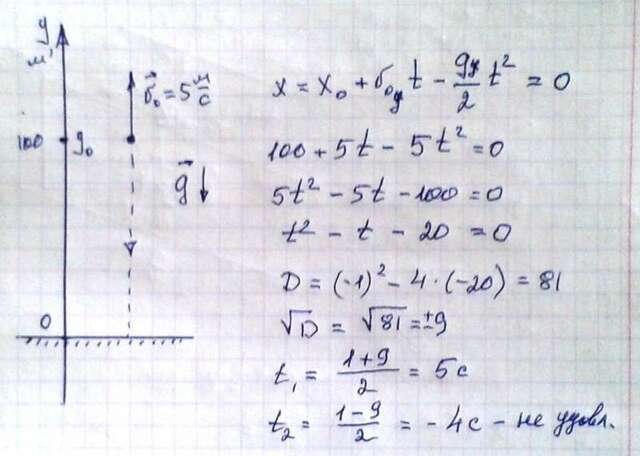 y
м
υ⃗₀ = 5 м/с
100 y₀
g⃗ ↓
0
x = x₀ + υ₀y t − gy/2 t² = 0
100 + 5t − 5t² = 0
5t² − 5t − 100 = 0
t² − t − 20 = 0
D = (-1)² − 4·(−20) = 81
√D = √81 = ±9
t₁ = (1+9)/2 = 5с
t₂ = (1−9)/2 = −4с − не удовл.